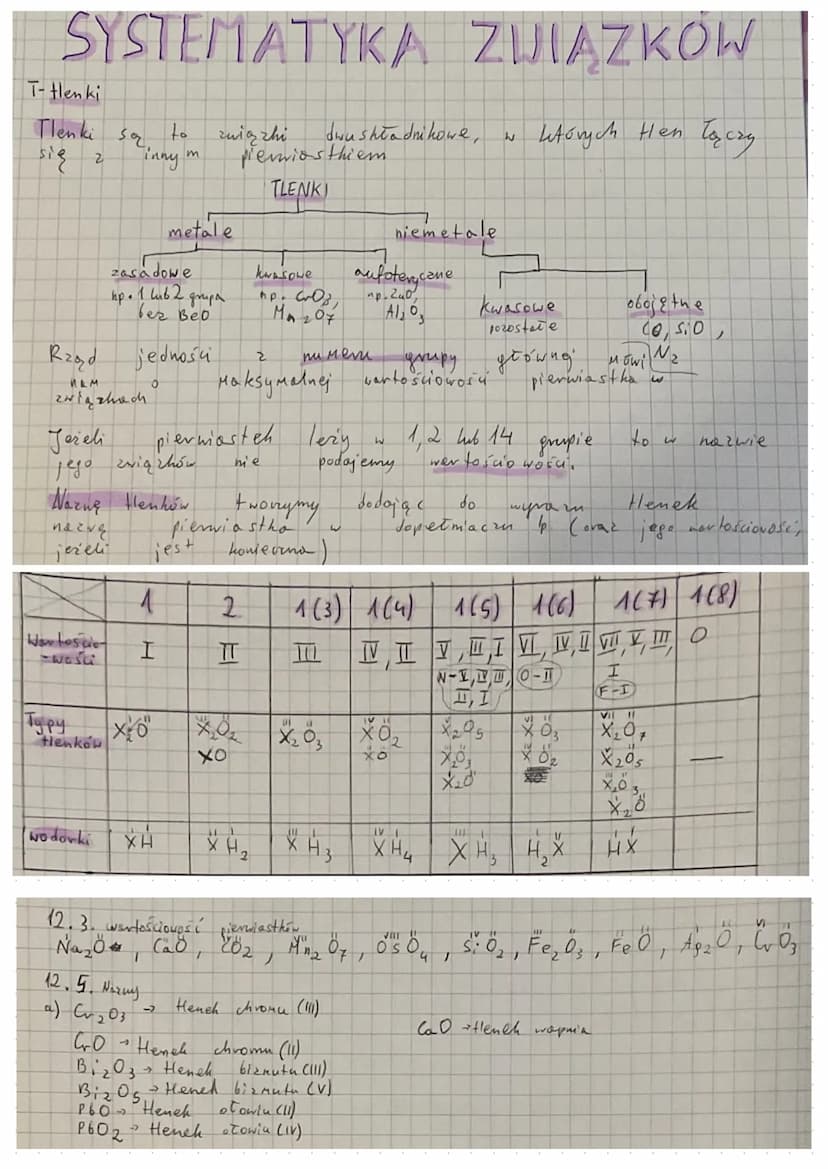 SYSTEMATYKA ZWIĄZKÓW
T-tlenki
Tlenki są to związki dwuskładnikowe, w których tlen łączy
się z innym pierwiastkiem
TLENKI
metale niemetale
zasadowe kwasowe amfoteryczne
np. 1 lub 2 grupa np. CrO₃, np. ZnO,
bez BeO Mn₂O₇ Al₂O₃
kwasowe obojętne
pozostałe CO, SiO,
N₂
Rząd jedności z numeru grupy głównej mówi
nam o maksymalnej wartościowości pierwiastka w
związkach
Jeżeli pierwiastek leży w 1, 2 lub 14 grupie to w nazwie
jego związków nie podajemy wartościowości.
Nazwę tlenków tworzymy dodając do wyrazu tlenek
nazwę pierwiastka w dopełniaczu lp (oraz jego wartościowość,
jeżeli jest konieczna)
1 2 1(3) 1(4) 1(5) 1(6) 1(7) 1(8)
Wartościo-
-wości
I II III IV, II V, III, I VI, IV, II VII, V, III, I 0
N-V, IV, III, II, I O-II F-I
Typy
tlenków
X₂O X₂O₂ X₂O₃ XO₂ X₂O₅ XO₃ X₂O₇ —
XO XO X₂O₃ XO₂ X₂O₅
X₂O X₂O₃
X₂O
wodorki XH XH₂ XH₃ XH₄ XH₃ H₂X HX
12.3. wartościowość pierwiastków
Na₂O, CaO, CO₂, Mn₂O₇, OsO₄, SiO₂, Fe₂O₃, FeO, Ag₂O, CrO₃
12.5. Nazwy
a) Cr₂O₃ → tlenek chromu (III)
CaO → tlenek wapnia
CrO → tlenek chromu (II)
Bi₂O₃ → tlenek bizmutu (III)
Bi₂O₅ → tlenek bizmutu (V)
PbO → tlenek ołowiu (II)
PbO₂ → tlenek ołowiu (IV)